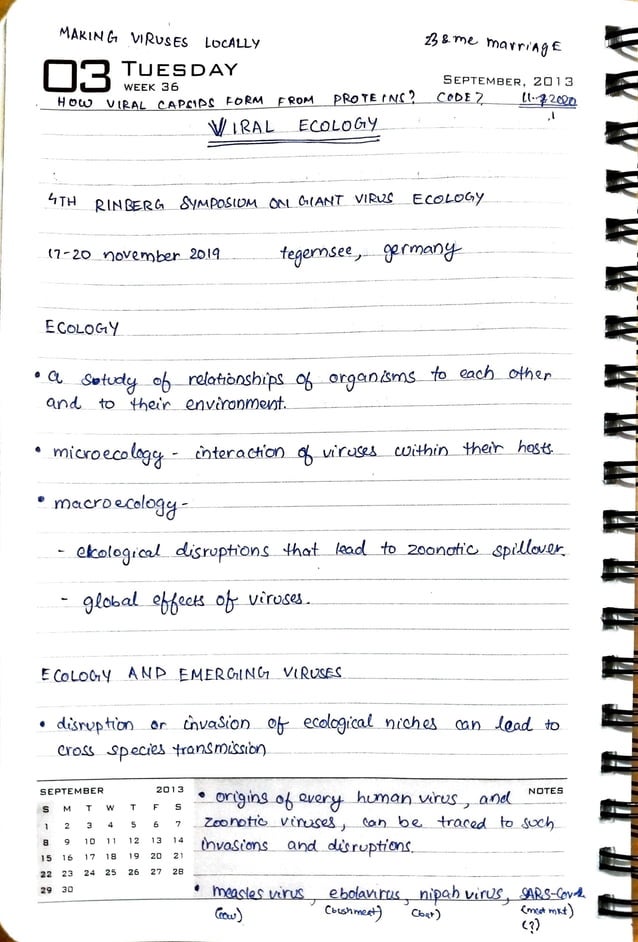 MAKING VIRUSES LOCALLY
23 & me marriage
03 TUESDAY
WEEK 36
SEPTEMBER, 2013
HOW VIRAL CAPSIDS FORM FROM PROTEINS? CODE?
VIRAL ECOLOGY
4TH RINBERG SYMPOSIUM ON GIANT VIRUS ECOLOGY
17-20 november 2019 tegernsee, germany
ECOLOGY
• a study of relationships of organisms to each other
and to their environment.
• microecology - interaction of viruses within their hosts
• macroecology -
- ecological disruptions that lead to zoonotic spillover.
- global effects of viruses.
ECOLOGY AND EMERGING VIRUSES
• disruption or invasion of ecological niches can lead to
cross species transmission
SEPTEMBER 2013
S M T W T F S
1 2 3 4 5 6 7
8 9 10 11 12 13 14
15 16 17 18 19 20 21
22 23 24 25 26 27 28
29 30
NOTES
• origins of every human virus, and
zoonotic viruses, can be traced to such
invasions and disruptions.
• measles virus, ebolavirus, nipah virus, SARS-CoV-2
(cow) (bushmeat) (bat) (meat mkt)
(?)